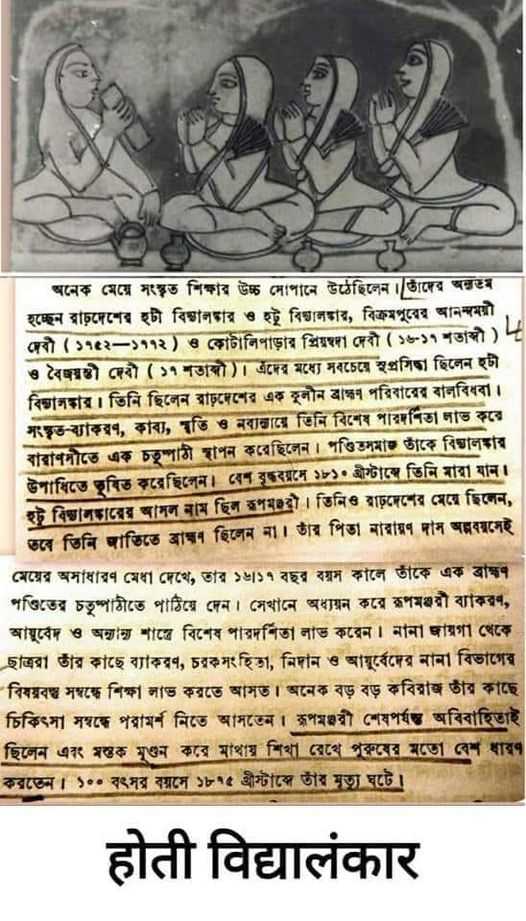 অনেক মেয়ে সংস্কৃত শিক্ষার উচ্চ সোপানে উঠেছিলেন। তাঁদের অন্যতম
হচ্ছেন রাঢ়দেশের হটী বিদ্যালঙ্কার ও হটু বিদ্যালঙ্কার, বিক্রমপুরের আনন্দময়ী
দেবী (১৭৫২—১৭৭২) ও কোটালিপাড়ার প্রিয়ম্বদা দেবী (১৬-১৭ শতাব্দী)
ও বৈজয়ন্তী দেবী (১৭ শতাব্দী)। এঁদের মধ্যে সবচেয়ে সুপ্রসিদ্ধা ছিলেন হটী
বিদ্যালঙ্কার। তিনি ছিলেন রাঢ়দেশের এক কুলীন ব্রাহ্মণ পরিবারের বালবিধবা।
সংস্কৃত-ব্যাকরণ, কাব্য, স্মৃতি ও নব্যন্যায়ে তিনি বিশেষ পারদর্শিতা লাভ করে
বারাণসীতে এক চতুষ্পাঠী স্থাপন করেছিলেন। পণ্ডিতসমাজ তাঁকে বিদ্যালঙ্কার
উপাধিতে ভূষিত করেছিলেন। বেশ বৃদ্ধবয়সে ১৮১০ খ্রীস্টাব্দে তিনি মারা যান।
হটু বিদ্যালঙ্কারের আসল নাম ছিল রূপমঞ্জরী। তিনিও রাঢ়দেশের মেয়ে ছিলেন,
তবে তিনি জাতিতে ব্রাহ্মণ ছিলেন না। তাঁর পিতা নারায়ণ দাস অল্পবয়সেই
মেয়ের অসাধারণ মেধা দেখে, তার ১৬।১৭ বছর বয়স কালে তাঁকে এক ব্রাহ্মণ
পণ্ডিতের চতুষ্পাঠীতে পাঠিয়ে দেন। সেখানে অধ্যয়ন করে রূপমঞ্জরী ব্যাকরণ,
আয়ুর্বেদ ও অন্যান্য শাস্ত্রে বিশেষ পারদর্শিতা লাভ করেন। নানা জায়গা থেকে
ছাত্ররা তাঁর কাছে ব্যাকরণ, চরকসংহিতা, নিদান ও আয়ুর্বেদের নানা বিভাগের
বিষয়বস্তু সম্বন্ধে শিক্ষা লাভ করতে আসত। অনেক বড় বড় কবিরাজ তাঁর কাছে
চিকিৎসা সম্বন্ধে পরামর্শ নিতে আসতেন। রূপমঞ্জরী শেষপর্যন্ত অবিবাহিতাই
ছিলেন এবং মস্তক মুণ্ডন করে মাথায় শিখা রেখে পুরুষের মতো বেশ ধারণ
করতেন। ১০০ বৎসর বয়সে ১৮৭৫ খ্রীস্টাব্দে তাঁর মৃত্যু ঘটে।
होती विद्यालंकार